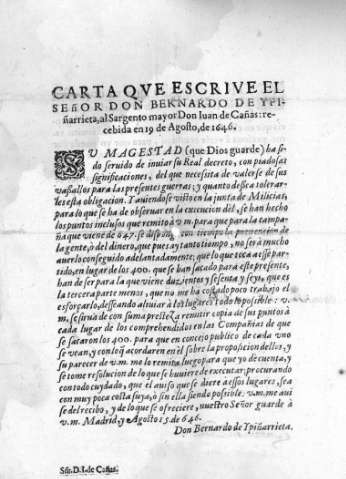 CARTA QVE ESCRIVE EL
SEñOR DON BERNARDO DE YPI-
ñarrieta, al Sargento mayor Don Iuan de Cañas: re-
cebida en 19 de Agosto, de 1646.
SV MAGESTAD (que Dios guarde) ha si-
do seruido de inuiar su Real decreto, con piadosas
significaciones, del que necesita de valerse de sus
vasallos para las presentes guerras; y quanto desea tolerar-
les esta obligacion. Y auiendose visto en la junta de Milicias,
para lo que se ha de obseruar en la execucion dèl, se han hecho
los puntos inclusos que remito à v.m. para que para la campa-
ña que viene de 647. se disponga con tiempo la preuencion de
la gente, ò del dinero, que pues ay tanto tiempo, no serà mucho
auerlo conseguido adelantadamente; que lo que toca a esse par-
tido, en lugar de los 400. que se han sacado para este presente,
han de ser para la que viene duzientos y sesenta y seys, que es
la tercera parte menos, que no me ha costado poco trabajo el
esforçarlo, desseando aliuiar à los lugares todo lo possible: v.
m. se sirua de con suma presteza remitir copia de sus puntos à
cada lugar de los comprehendidos en las Compañias de que
se sacaron los 400. para que en concejo publico de cada vno
se vean, y con lo q̃ acordaren en èl sobre la proposicion dellos, y
su parecer de v.m. me lo remita luego para que yo dè cuenta, y
se tome resolucion de lo que se huuiere de executar; procurando
con todo cuydado, que el auiso que se diere à essos lugares, sea
con muy poca costa suya, ò sin ella siendo possible. v.m. me aui
se del recibo, y de lo que se ofreciere, nuestro Señor guarde à
v.m. Madrid, y Agosto 15 de 646.
Don Bernardo de Ypiñarrieta.
Señ. D. I. de Cañas.